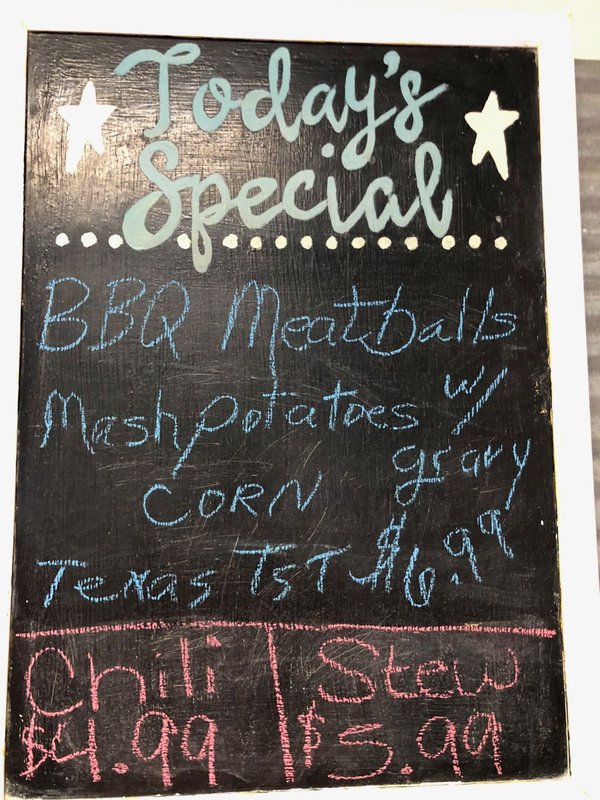 Today's
Special
BBQ Meatballs
Mash potatoes w/
gravy
CORN
Texas TST $6.99
Chili | Stew
$4.99 | $5.99